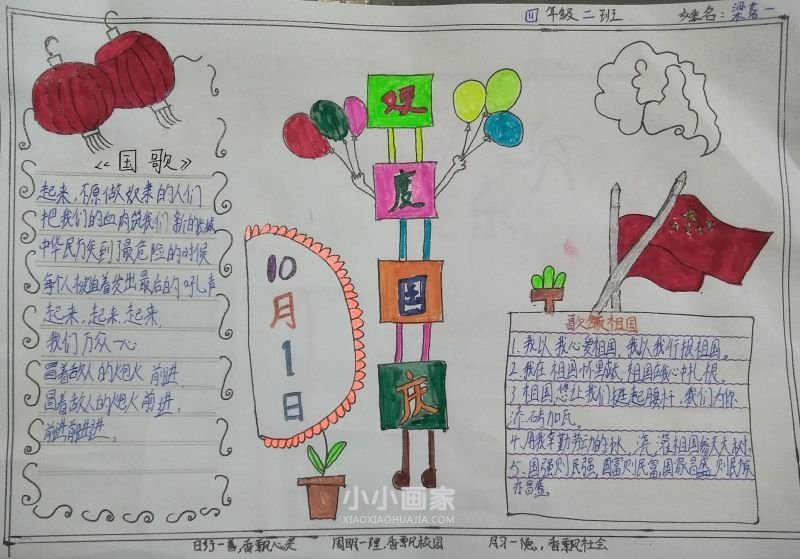 四年级二班 姓名：梁嘉一
《国歌》
起来，不愿做奴隶的人们
把我们的血肉筑我们新的长城
中华民族到了最危险的时候
每个人被迫着发出最后的吼声
起来，起来，起来，
我们万众一心
冒着敌人的炮火 前进，
冒着敌人的炮火前进，
前进前进进。
10
月
1
日
双
度
国
庆
歌颂祖国
1. 我以我心爱祖国，我以我行报祖国。
2. 我在祖国怀里 祖国在我心中扎根。
3 祖国，您让我们挺起腰杆，我们为你
添砖加瓦。
4. 用我辛勤劳动的 ，浇灌祖国参天大树。
5、国强则民强，国富则民富，国家昌盛 则民族
亦昌盛。
小小画家
XIAOXIAOHUAJIA.COM
日行一善，香飘心灵 周明一理，香飘校园 月习一德，香飘社会